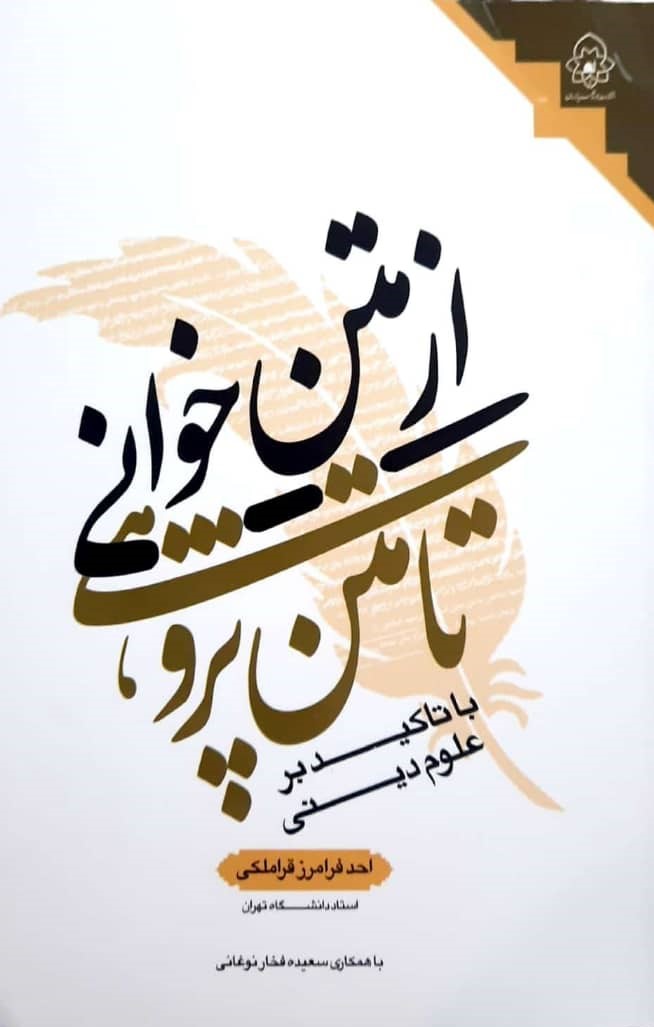 از متن خوانی
تا متن پژوهشی
با تاکید بر
علوم دینی
احد فرامرز قراملکی
استاد دانشگاه تهران
با همکاری سعیده فخار نوغانی